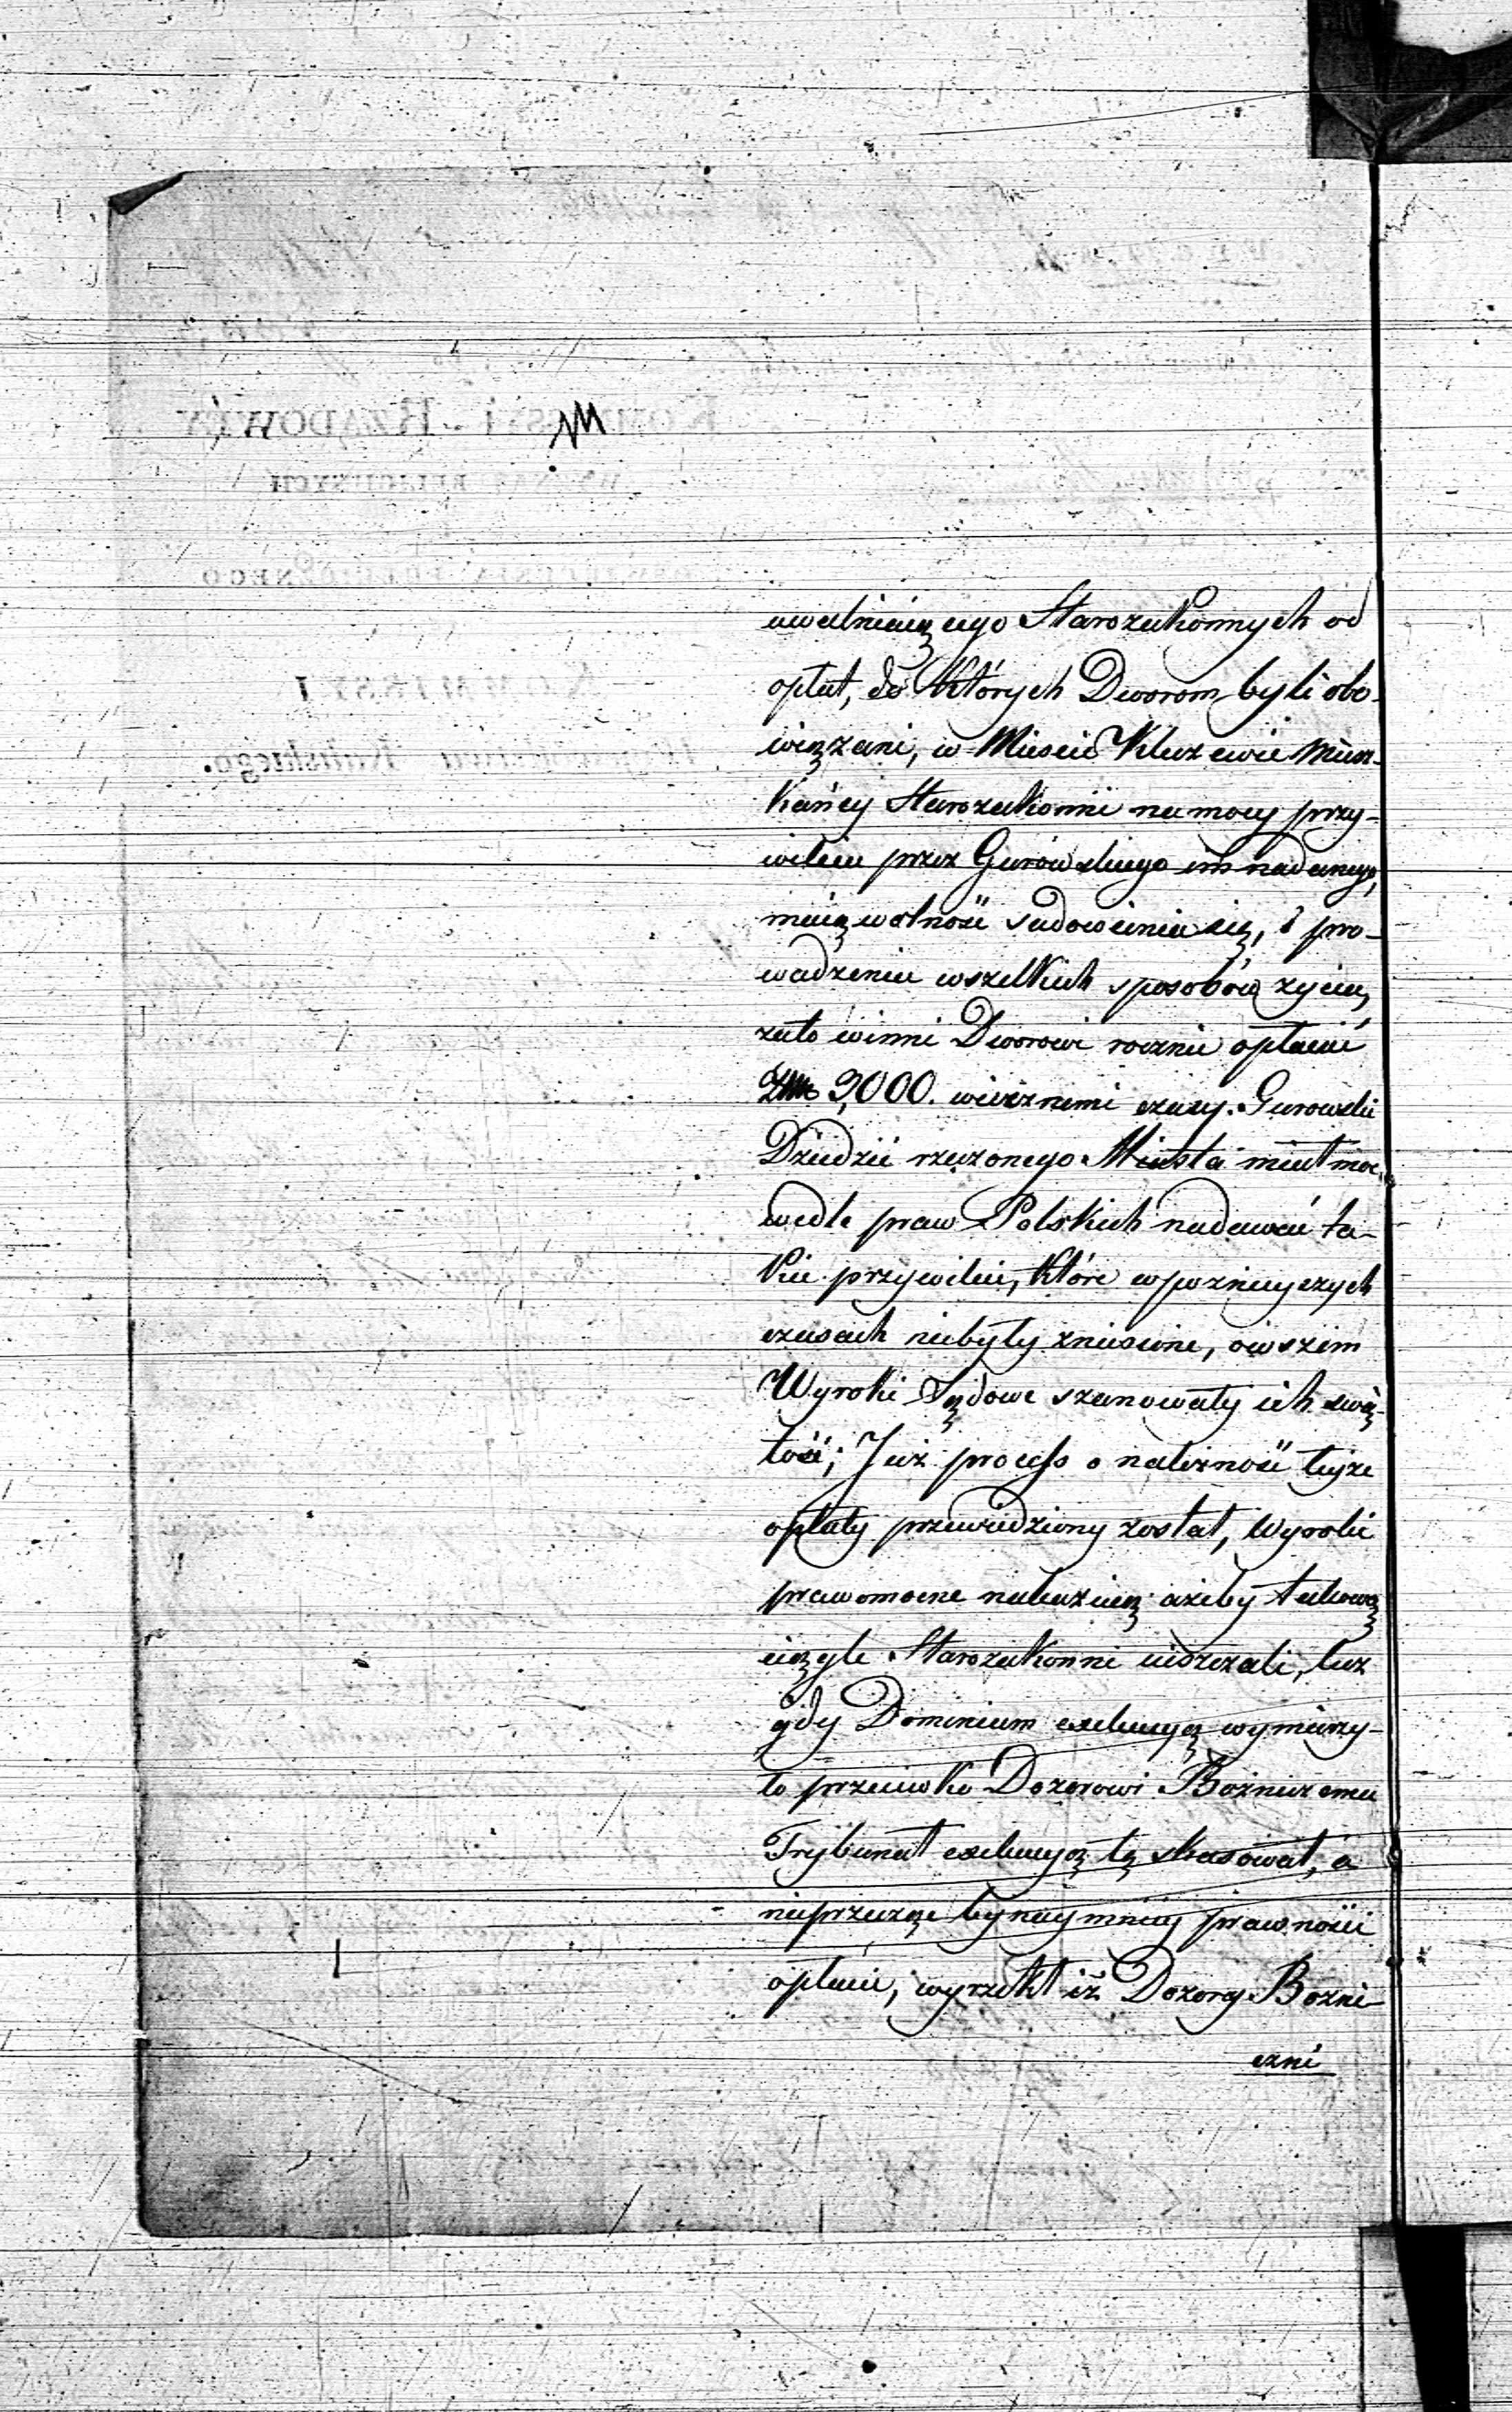 uwalniaiącego Starozakonnych od
opłat, do których Dworom byli obo-
wiązani, w Mieście Kleczewie Miesz-
kańcy Starozakonni na mocy przy-
wileiu przez Gurowskiego im nadanego,
maią wolność sadowienia się, i pro-
wadzenia wszelkich sposobów życia,
zato winni Dworowi rocznie opłacić
3,000. wiecznemi czasy. Gurowski
Dziedzic rzeczonego Miasta miał moc
wedle praw Polskich nadawać ta-
kie przywileie, które w poznieyszych
czasach niebyły zniesione, owszem
Wyroki Sądowe szanowały ich swię-
tość; Już process o należność teyże
opłaty przewiedziony został, Wyroki
prawomocne nakazuią ażeby takową
ciągle Starozakonni uiszczali, lecz
gdy Dominium exekucyą wymierzy-
ło przeciwko Dozorowi Bożniczemu
Trybunał exekucyą tą skasował, a
nieprzecząc bynaymniey prawności
opłacie, wyrzekł iż Dozory Bożni-
czni
KOMMISSYI RZĄDOWEY
WYZNAŃ RELIGIINYCH
OŚWIECENIA PUBLICZNEGO
KOMMISSYI
Województwa Kaliskiego.